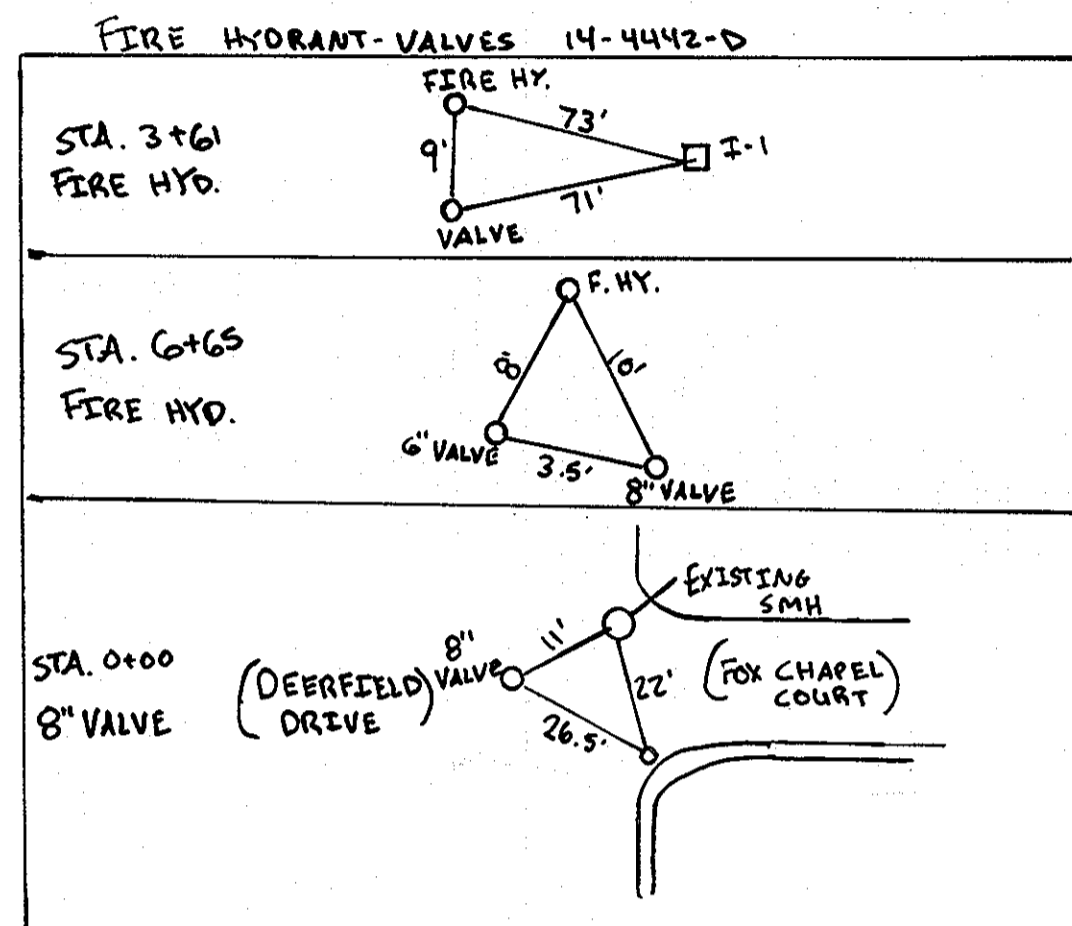 FIRE HYDRANT-VALVES 14-4442-D
STA. 3+61
FIRE HYD.
FIRE HY.
73'
9'
I-1
71'
VALVE
STA. 6+65
FIRE HYD.
F. HY.
8'
10'
6" VALVE
3.5'
8" VALVE
STA. 0+00
8" VALVE
(DEERFIELD
DRIVE)
8"
VALVE
11'
EXISTING
SMH
22'
26.5'
(FOX CHAPEL
COURT)